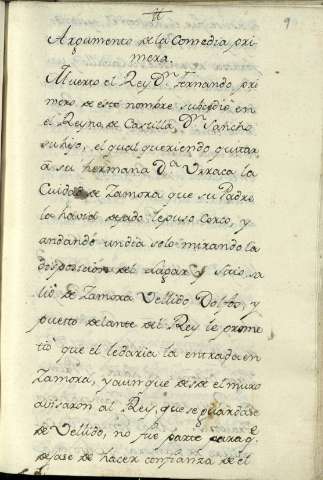 9
Argumento de la Comedia pri
mera.
Muerto el Rey D.n Fernando, pri
mero de este nombre subcedio en
el Reyno de Castilla, D.n Sancho
su hijo, el qual queriendo quitar
a su hermana D.a Urraca la
Ciudad de Zamora que su Padre
la havia dejado le puso Cerco, y
andando un dia solo mirando la
disposicion del Lugar y Sitio sa
lio de Zamora Vellido Dolfos, y
puesto delante del Rey le prome
tio que el le daria la entrada en
Zamora, y aunque desde el muro
avisaron al Rey, que se guardase
de Vellido, no fue parte para q.e
dejase de hacer confianza de el